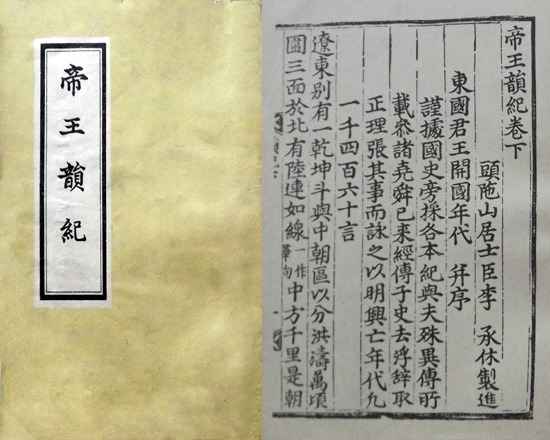 帝王韻紀
帝王韻紀卷下
頭陁山居士臣李 承休製進
東國君王開國年代 幷序
謹據國史旁採各本紀與夫殊異傳所
載叅諸堯舜已來經傳子史去浮辭取
正理張其事而詠之以明興亡年代凡
一千四百六十言
遼東别有一乾坤斗與中朝區以分洪濤萬頃
圍三面於北有陸連如線一作中方千里是朝